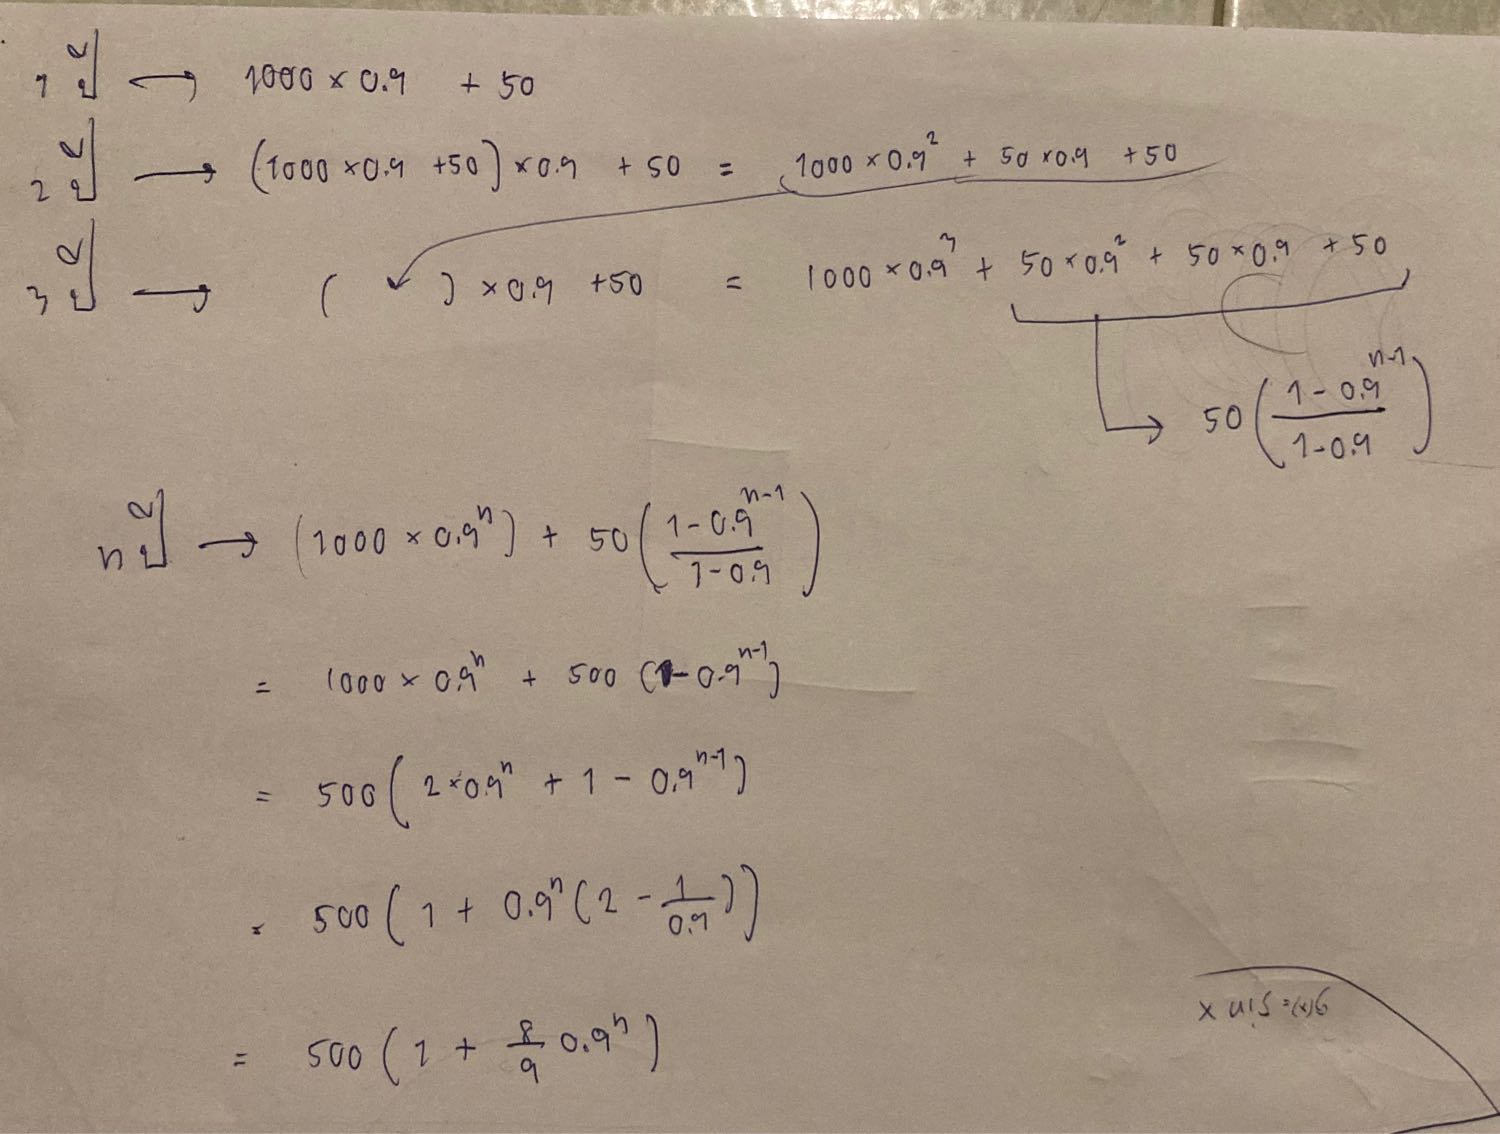 1 ปี → 1000 × 0.9 + 50
2 ปี → (1000 × 0.9 + 50) × 0.9 + 50 = 1000 × 0.9² + 50 × 0.9 + 50
3 ปี → ( ) × 0.9 + 50 = 1000 × 0.9³ + 50 × 0.9² + 50 × 0.9 + 50
→ 50 ((1 - 0.9^(n-1))/(1 - 0.9))
n ปี → (1000 × 0.9^n) + 50 ((1 - 0.9^(n-1))/(1 - 0.9))
= 1000 × 0.9^n + 500 (1 - 0.9^(n-1))
= 500 (2 × 0.9^n + 1 - 0.9^(n-1))
= 500 (1 + 0.9^n (2 - 1/0.9))
= 500 (1 + 8/9 0.9^n)
g(x) = sin x